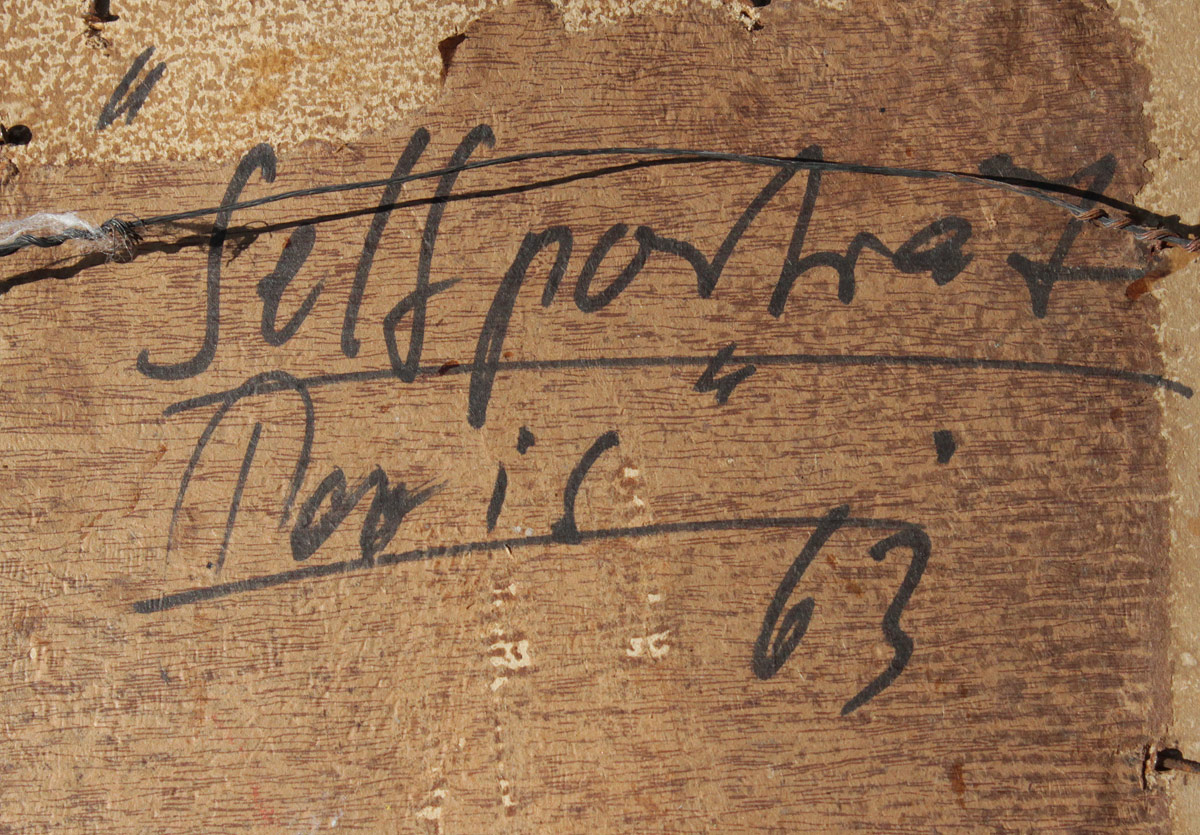 "Selfportrait"
Paris 63